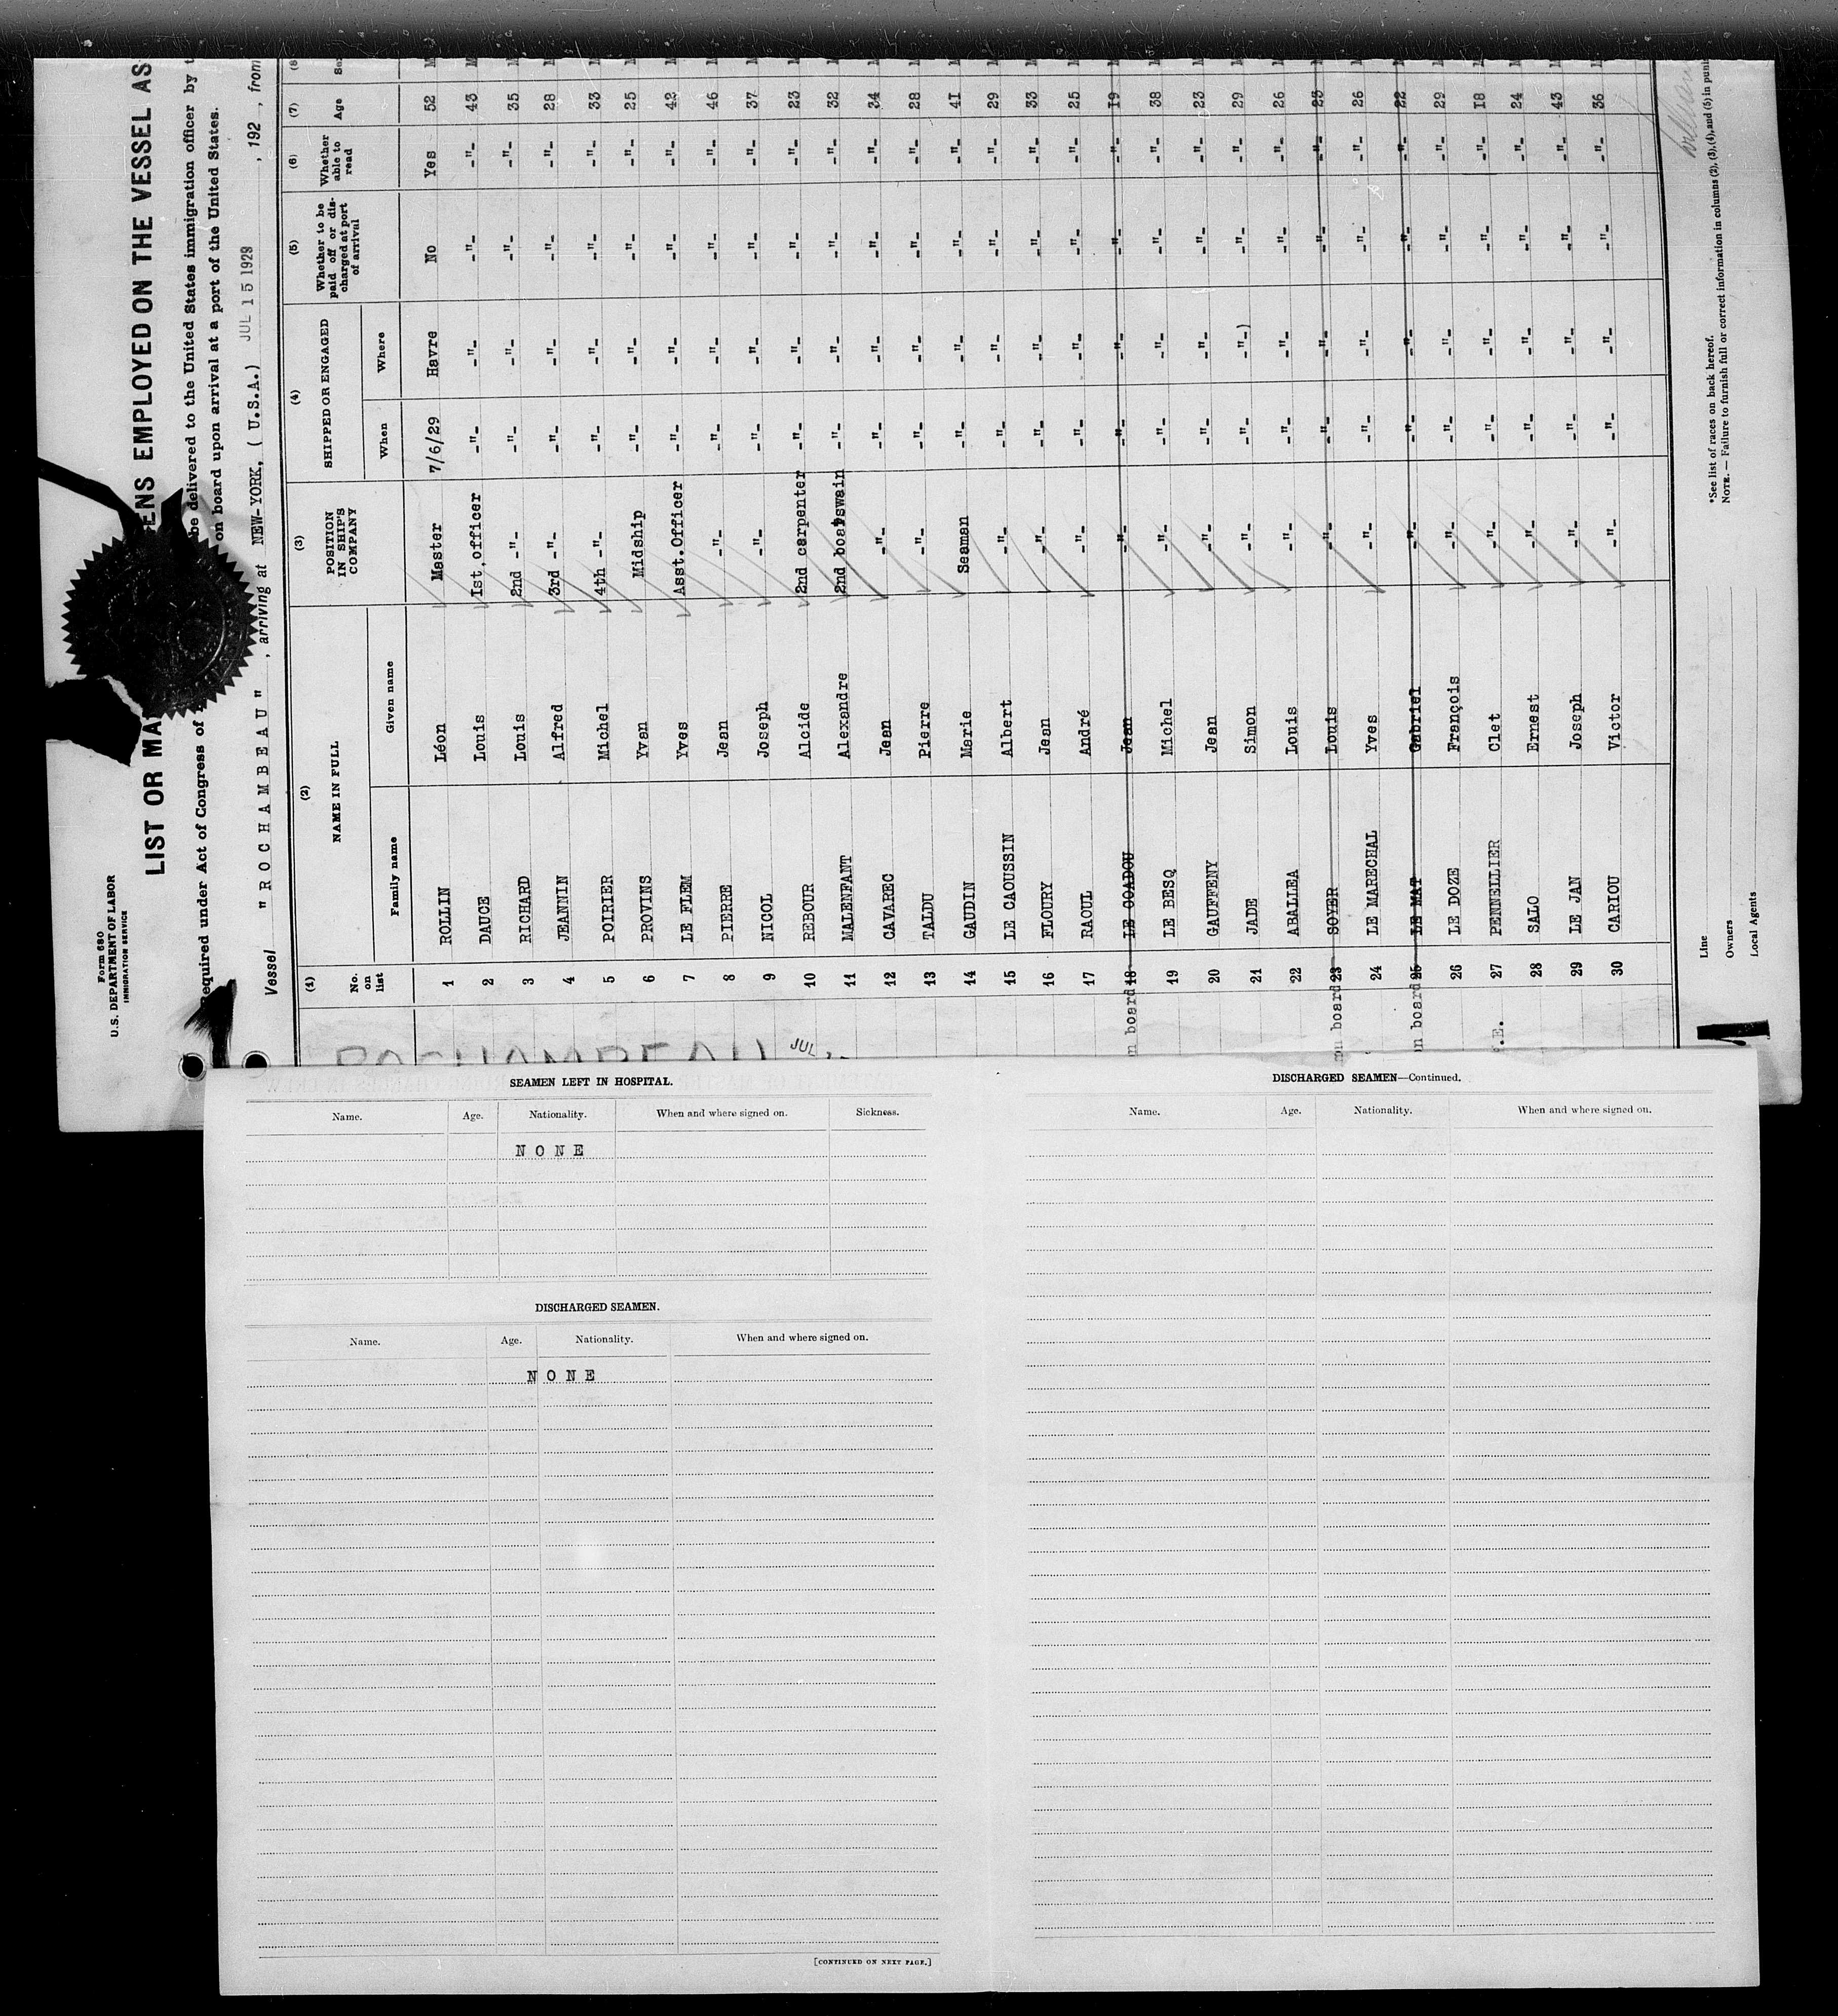 Form 680
U.S. DEPARTMENT OF LABOR
IMMIGRATION SERVICE
LIST OR MA ENS EMPLOYED ON THE VESSEL AS
Required under Act of Congress of be delivered to the United States immigration officer by
on board upon arrival at a port of the United States.
Vessel " R O C H A M B E A U " , arriving at NEW-YORK, ( U.S.A.) JUL 15 1929 , 192 , from
(1) (2) (3) (4) (5) (6) (7) (8
No. on list NAME IN FULL POSITION IN SHIP'S COMPANY SHIPPED OR ENGAGED Whether to be paid off or discharged at port of arrival Whether able to read Age
Family name Given name When Where
1 ROLLIN Léon Master 7/6/29 Havre No Yes 52 M
2 DAUCE Louis 1st.officer -"- -"- -"- -"- 43 M
3 RICHARD Louis 2nd -"- -"- -"- -"- -"- 35 M
4 JEANNIN Alfred 3rd -"- -"- -"- -"- -"- 28 M
5 POIRIER Michel 4th -"- -"- -"- -"- -"- 33 M
6 PROVINS Yvan Midship -"- -"- -"- -"- 25 M
7 LE FLEM Yves Asst.Officer -"- -"- -"- -"- 42 M
8 PIERRE Jean -"- -"- -"- -"- -"- 46 M
9 NICOL Joseph -"- -"- -"- -"- -"- 37 M
10 REBOUR Alcide 2nd carpenter -"- -"- -"- -"- 23 M
11 MALENFANT Alexandre 2nd boatswain -"- -"- -"- -"- 32 M
12 CAVAREC Jean -"- -"- -"- -"- -"- 34 M
13 TALDU Pierre -"- -"- -"- -"- -"- 28 M
14 GAUDIN Marie Seaman -"- -"- -"- -"- 41 M
15 LE CAOUSSIN Albert -"- -"- -"- -"- -"- 29 M
16 FLOURY Jean -"- -"- -"- -"- -"- 33 M
17 RAOUL André -"- -"- -"- -"- -"- 25 M
n board 18 LE COADOU Jean -"- -"- -"- -"- -"- 19 M
19 LE BESQ Michel -"- -"- -"- -"- -"- 38 M
20 GAUFFENY Jean -"- -"- -"- -"- -"- 23 M
21 JADE Simon -"- -"- -"-) -"- -"- 29 M
22 ABALLEA Louis -"- -"- -"- -"- -"- 26 M
on board 23 SOYER Louis -"- -"- -"- -"- -"- 23 M
24 LE MARECHAL Yves -"- -"- -"- -"- -"- 26 M
on board 25 LE MAT Gabriel -"- -"- -"- -"- -"- 22 M
26 LE DOZE François -"- -"- -"- -"- -"- 29 M
.E. 27 PENNELLIER Clet -"- -"- -"- -"- -"- 18 M
28 SALO Ernest -"- -"- -"- -"- -"- 24 M
29 LE JAN Joseph -"- -"- -"- -"- -"- 43 M
30 CARIOU Victor -"- -"- -"- -"- -"- 36 M
ROCHAMBEAU JUL
Line
Owners
Local Agents
*See list of races on back hereof.
NOTE. — Failure to furnish full or correct information in columns (2), (3), (4), and (5) in
SEAMEN LEFT IN HOSPITAL.
Name. Age. Nationality. When and where signed on. Sickness.
N O N E
DISCHARGED SEAMEN.
Name. Age. Nationality. When and where signed on.
N O N E
[CONTINUED ON NEXT PAGE.]
DISCHARGED SEAMEN—Continued.
Name. Age. Nationality. When and where signed on.